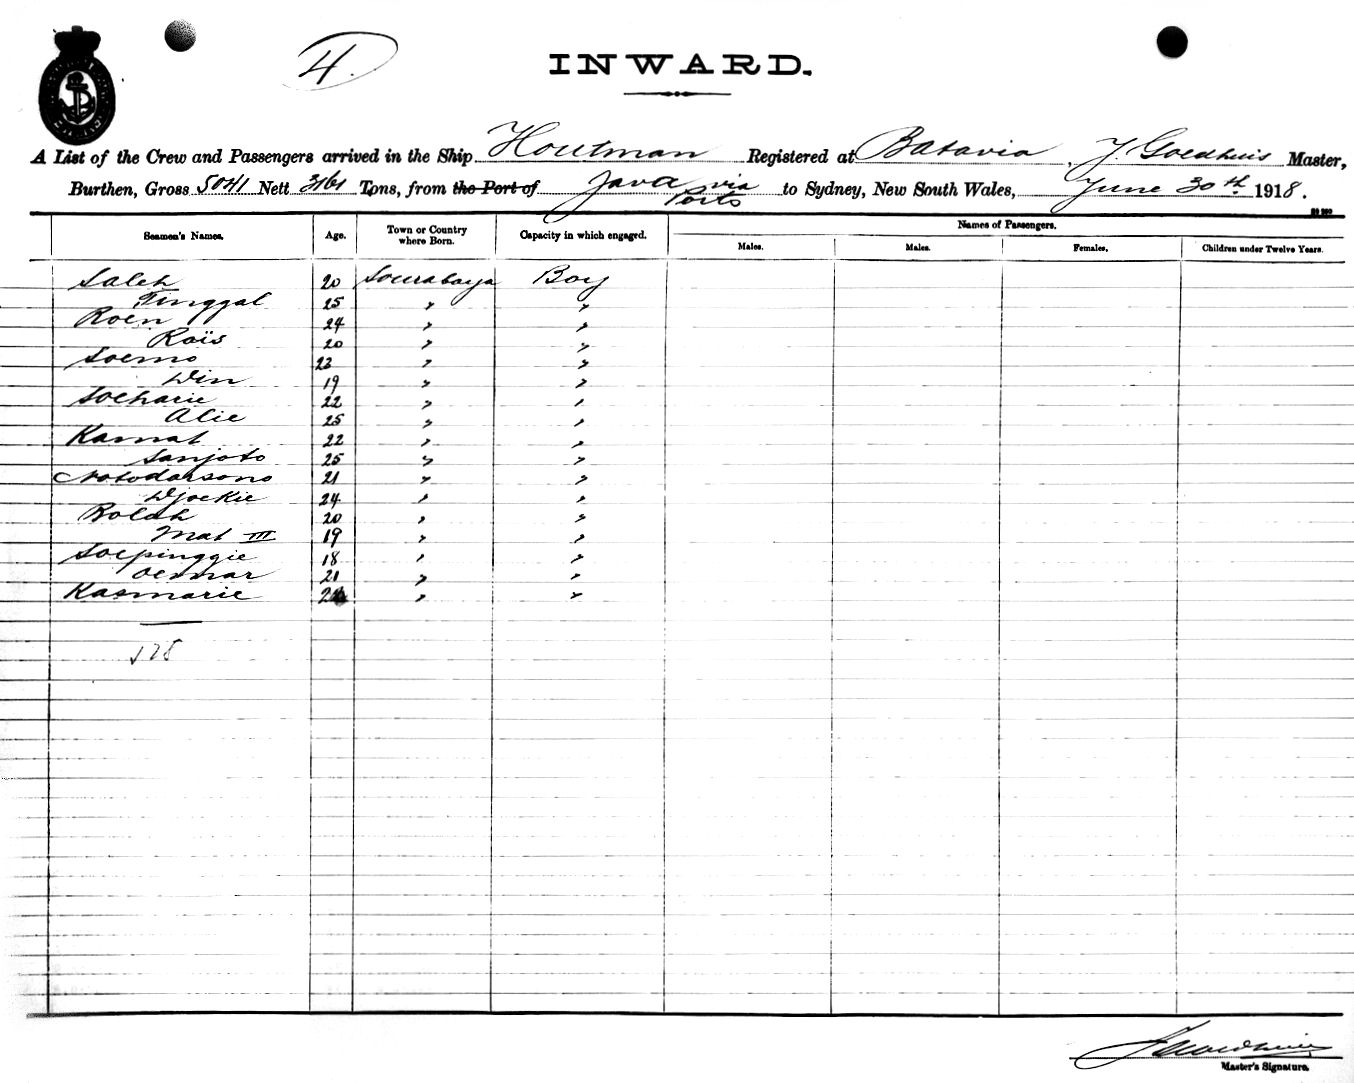 4.
INWARD.
A List of the Crew and Passengers arrived in the Ship Houtman Registered at Batavia, J. Goedhuis Master,
Burthen, Gross 5041 Nett 3161 Tons, from the Port of Java via Ports to Sydney, New South Wales, June 30th 1918.
Seamen's Names. Age. Town or Country where Born. Capacity in which engaged. Names of Passengers.
Males. Males. Females. Children under Twelve Years.
Saleh 20 Sourabaya Boy
Tinggal 25 " "
Roen 24 " "
Roïs 20 " "
Soemo 22 " "
Win 19 " "
Soeharie 22 " "
Alie 25 " "
Kamat 22 " "
Sanjoto 25 " "
Notodarsono 21 " "
Djoekie 24 " "
Bolah 20 " "
Mat III 19 " "
Soepinggie 18 " "
Oemar 21 " "
Kasmarie " "
Master's Signature.